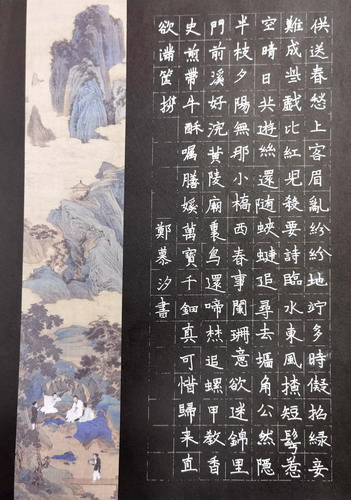 供送春愁上客眉亂紛紛地竚多時儗招綠妾
難成些戲比紅兒殺要詩臨水東風撩短鬂惹
空晴日共遊絲還随蛺蝶追尋去墻角公然隱
半枝夕陽無那小橋西春事闌珊意欲迷錦里
門前溪好浣黄陵廟裏鳥還啼焚追螺甲教香
史煎帶牛酥囑膳媛萬寶千鈿真可惜歸来直
欲滿筐擕
鄭慕汐書